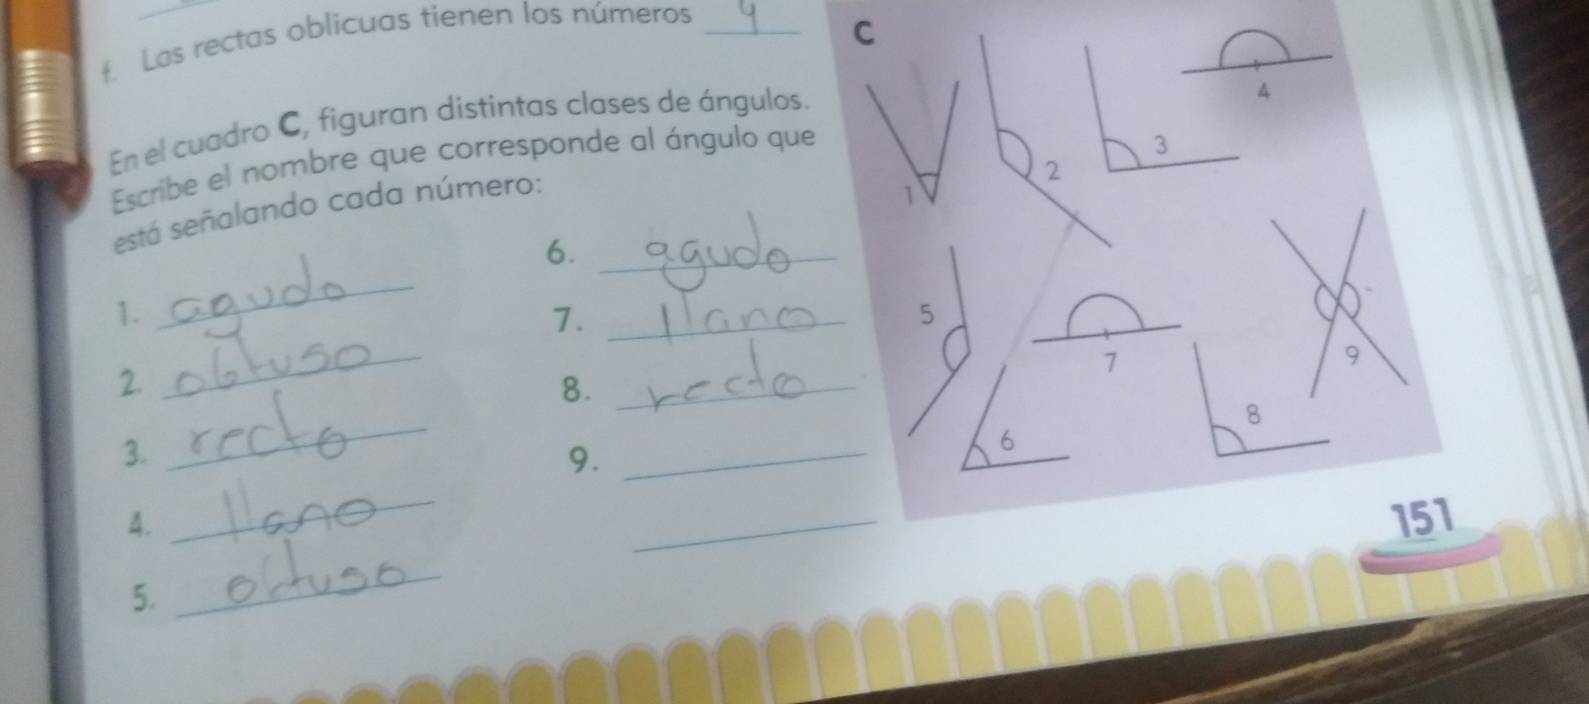 f. Las rectas oblicuas tienen los números 4
En el cuadro C, figuran distintas clases de ángulos.
Escribe el nombre que corresponde al ángulo que
está señalando cada número:
1. agudo
2. obtuso
3. recto
4. llano
5. obtuso
6. agudo
7. llano
8. recto
9.
C
1
2
3
4
5
6
7
8
9
151